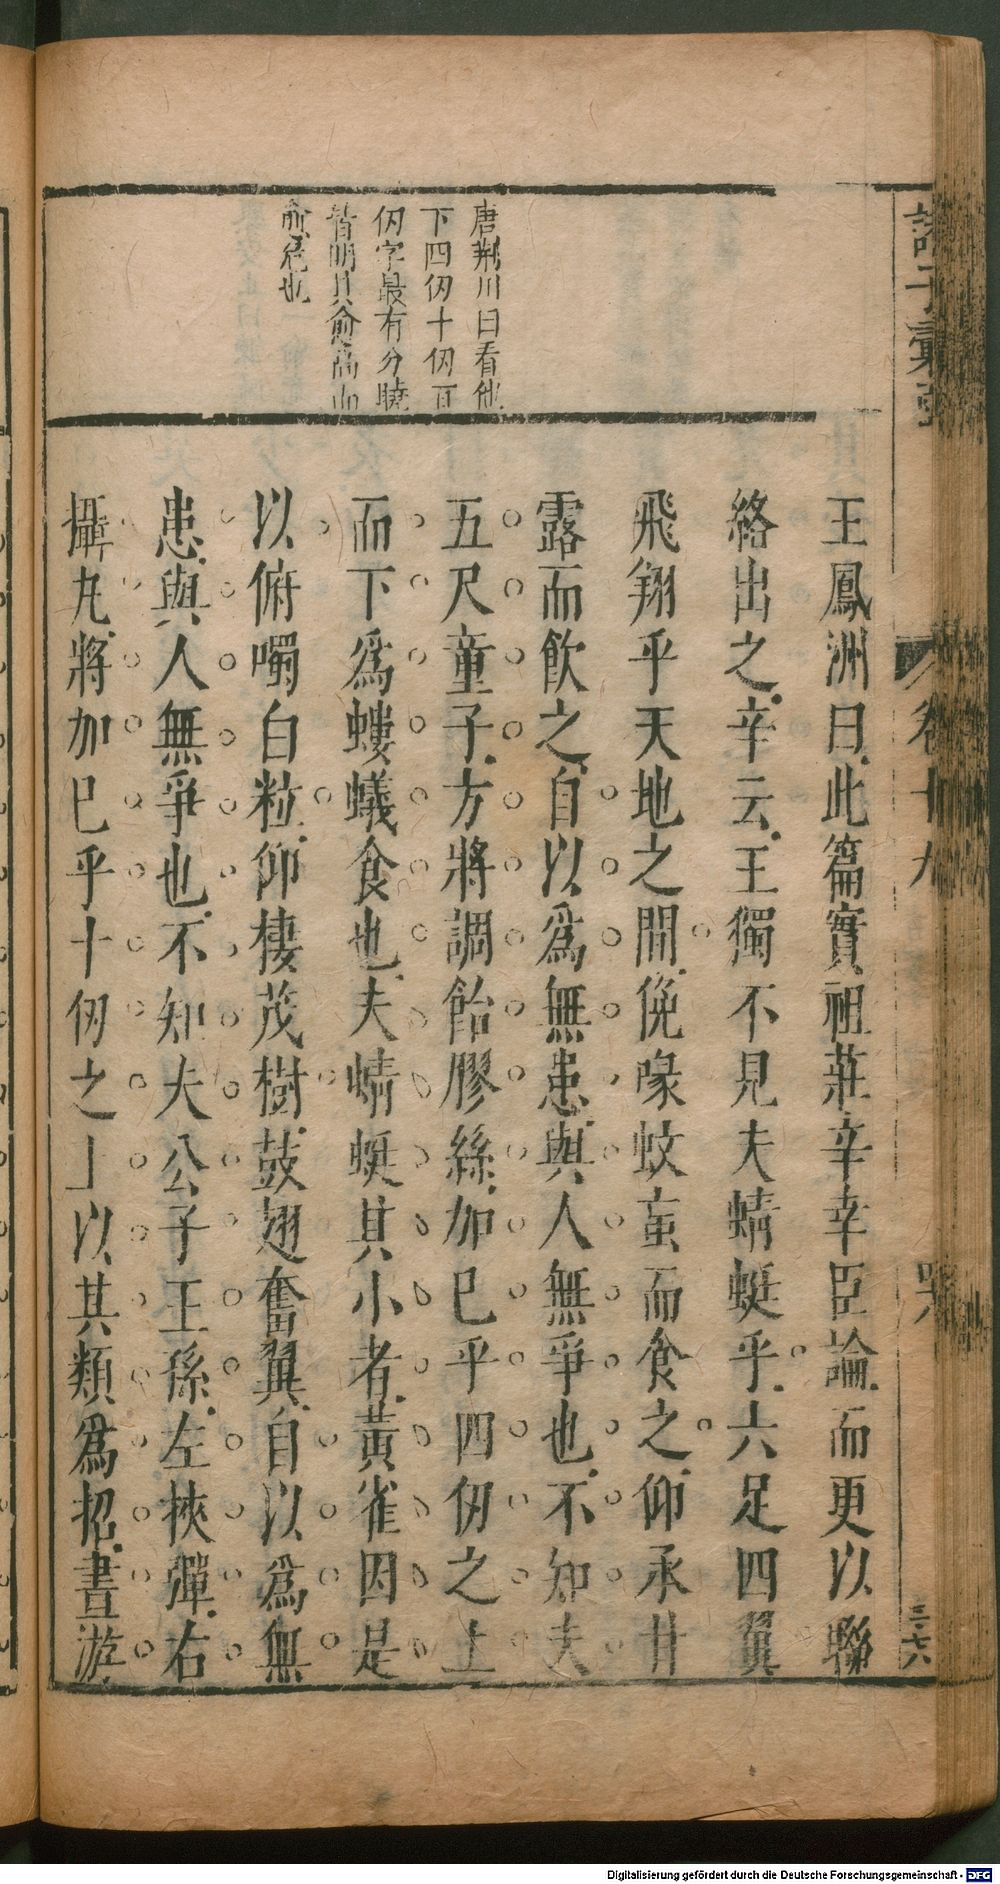 唐荊川曰看他
下四仞十仞百
仞字最有分曉
皆明其愈高而
愈危也
王鳳洲曰此篇實祖莊辛幸臣論而更以聯
絡出之辛云王獨不見夫蜻蜓乎六足四翼
飛翔乎天地之間俛喙蚊䖟而食之仰承甘
露而飲之自以為無患與人無爭也不知夫
五尺童子方將調飴膠絲加巳乎四仞之上
而下為螻蟻食也夫蜻蜓其小者黃雀因是
以俯噣白粒仰棲茂樹鼓翅奮翼自以為無
患與人無爭也不知夫公子王孫左挾彈右
攝丸將加巳乎十仞之上以其類為招晝游
諸子彙
卷十九
三六
Digitalisierung gefördert durch die Deutsche Forschungsgemeinschaft - DFG